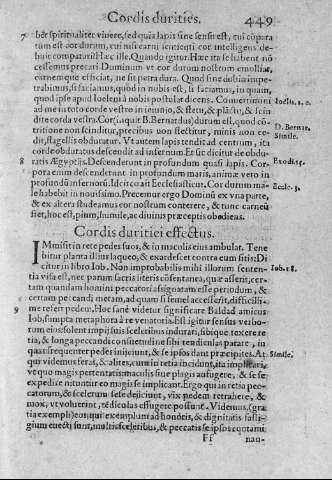 Cordis durities. 449
7 bet spiritualiter viuere, sed quia lapis sine sensu est, cui compara
tum est cor durum, cui nisi carni sentienti cor intelligens debuit comparari? Hæc ille. Quando igitur. Hæc ita se habent
cessemus precari Dominum vt cor durum nostrum emolliat,
carnemque efficiat, ne sit petra dura. Quod sine dubio impe-
trabimus, si faciamus, quod in nobis est, si faciamus, in quam,
quod ipse apud Ioelem à nobis postulat dicens. Conuertimini Ioelis. 2. c.
ad me in toto corde vestro in ieiunio, & fletu, & plāctu, & scin
dite corda vestra. Cor (inquit B. Bernardus) durum est, quod cō D. Berna.
tritione non scinditur, precibus non flectitur, minis non ce- Simile.
dit, flagellis obduratur. Vt autem lapis tendit ad centrum, ita
corde obduratus descendit ad infernum. Et sic dicitur de obdu-
8 ratis Ægyptijs. Descenderunt in profundum quasi lapis. Cor- Exodi. 15.
pora enim descenderunt in profundum maris, animæ vero in
profundū infernorū. Ideirco ait Ecclesiasticus. Cor durum ma- Eccle. 3.
le habebit in nouissimo. Precemur ergo Dominū ex vna parte,
& ex altera studeamus cor nostrum conterere, & tunc carneū
fiet, hoc est, pium, humile, ac diuinis præceptis obediens.
Cordis duritiei effectus.
IMmisit in rete pedes suos, & in maculis eius ambulat. Tene
bitur planta illius laqueo, & exardescet contra eum sitis: Di
citur in libro Iob. Non improbabilis mihi illorum senten- Iob. 18.
tia visa est, nec parum sacris literis cōsentanea, quæ asserit, cer-
tam quandam homini peccatori assignatam esse periodum, &
certum peccandi metam, ad quam si semel accesserit, difficilli-
9 me referet pedem. Hoc sanè videtur significare Baldad amicus
Iob, sumpta metaphora à re venatoria. Est igitur sensus verbo-
rum eius: solent impij suis sceletibus indurati, sibique texere re
tia, & longa peccandi consuetudine sibi tendiculas parate, in
quas frequenter pedes injiciunt, & se ipsos dant præcipites. At Simile.
qui videmus feras, & alites, cum in retia incidunt, ita implicari,
vt quo magis pertentatis maculis suæ plagis aufugere, & se
expedire nituntur eo magis se implicant. Ergo qui in retia pec-
catorum, & scelerum sese dejiciunt, vix pedem retrahere, &
mox, vt voluerint, tēdiculas effugere possunt. Videmus, (gra
tia exempli) eos, qui exemplum ad honoris, & dignitatis fasti-
gium euecti sunt, multis sceleribus, & peccatis se ipsos contami
Ff nau-